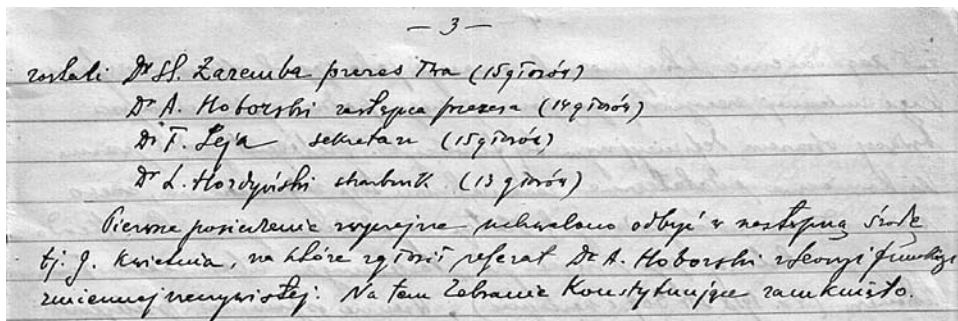 — 3 —
zostali Dr St. Zaremba prezes Twa (15 głosów)
Dr A. Hoborski zastępca prezesa (14 głosów)
Dr F. Leja sekretarz (15 głosów)
Dr L. Hordyński skarbnik (13 głosów)
Pierwsze posiedzenie zwyczajne uchwalono odbyć w następną środę
tj. 9. kwietnia, na które zgłosił referat Dr A. Hoborski z teoryi funkcyi
zmiennej rzeczywistej. Na tem Zebranie Konstytuujące zamknięto.